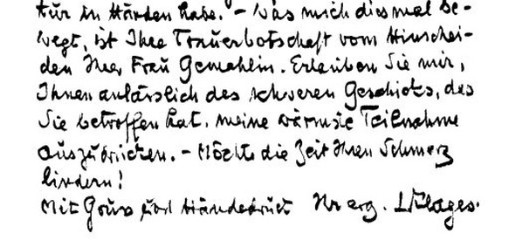 für in Händen habe. – Was mich diesmal be-
wegt, ist Ihre Trauerbotschaft vom Hinschei-
den Ihrer Frau Gemahlin. Erlauben Sie mir,
Ihnen anlässlich des schweren Geschicks, das
Sie betroffen hat, meine wärmste Teilnahme
auszudrücken. – Möcht die Zeit Ihren Schmerz
lindern!
Mit Gruss und Händedruck Ihr erg. LKlages.